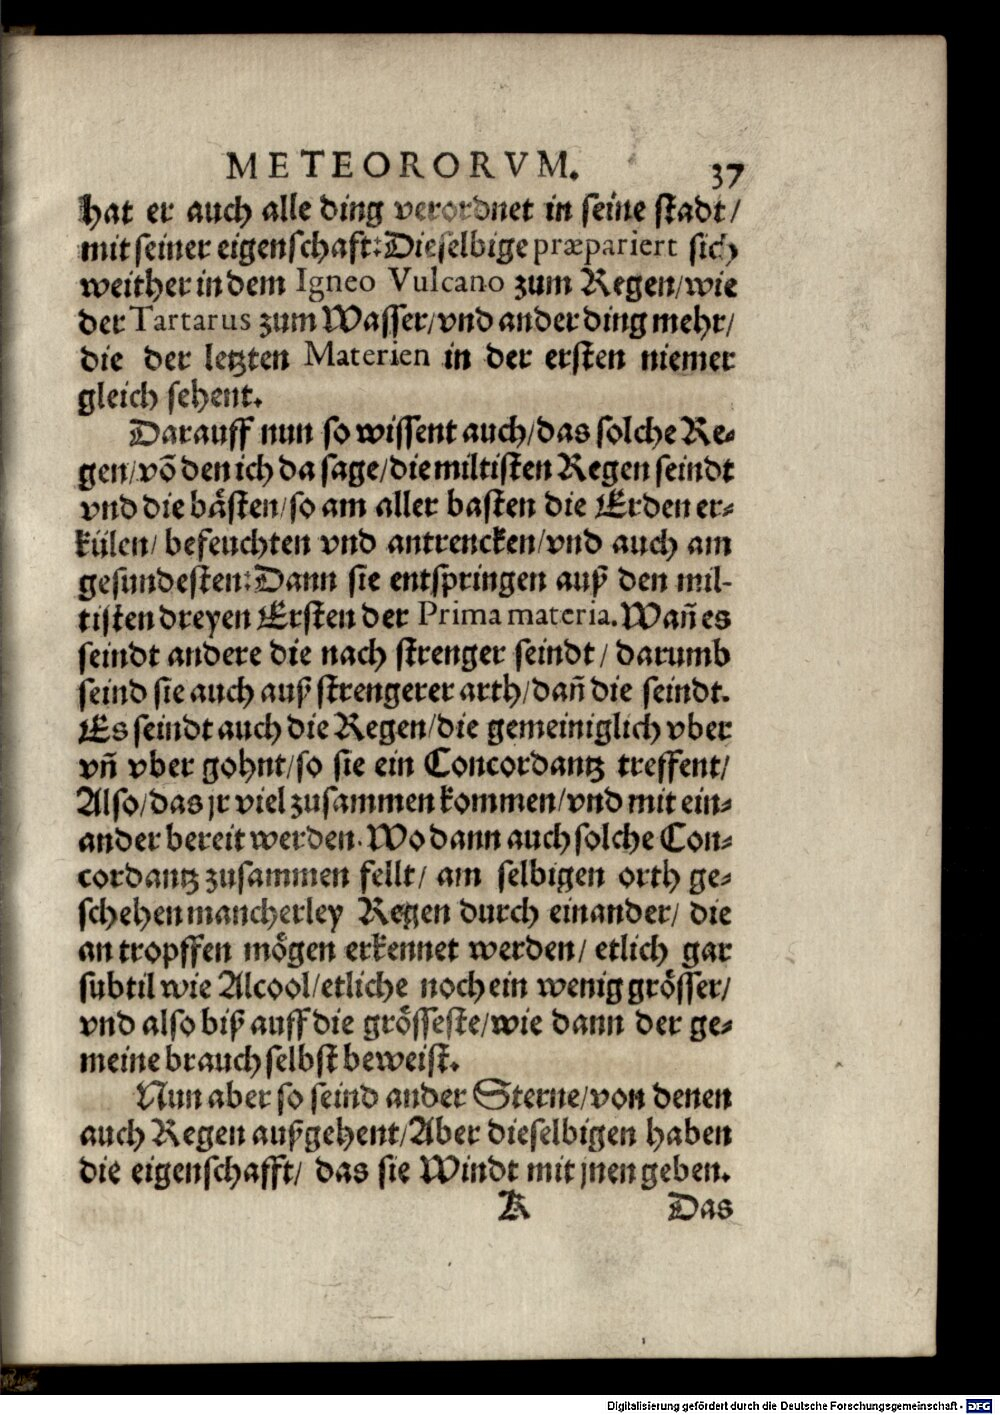 METEORORVM. 37
hat er auch alle ding verordnet in seine stadt/
mit seiner eigenschaft: Dieselbige præpariert sich
weither in dem Igneo Vulcano zum Regen/ wie
der Tartarus zum Wasser/ vnd ander ding mehr/
die der letzten Materien in der ersten niemer
gleich sehent.
Darauff nun so wissent auch/ das solche Re⸗
gen/ võ den ich da sage/ die miltisten Regen seindt
vnd die bästen/ so am aller basten die Erden er⸗
külen/ befeuchten vnd antrencken/ vnd auch am
gesundesten: Dann sie entspringen auß den mil-
tisten dreyen Ersten der Prima materia. Wañ es
seindt andere die nach strenger seindt/ darumb
seind sie auch auß strengerer arth/ dañ die seindt.
Es seindt auch die Regen/ die gemeiniglich vber
vñ vber gohnt/ so sie ein Concordantz treffent/
Also/ das jr viel zusammen kommen/ vnd mit ein⸗
ander bereit werden. Wo dann auch solche Con⸗
cordantz zusammen fellt/ am selbigen orth ge⸗
schehen mancherley Regen durch einander/ die
an tropffen mögen erkennet werden/ etlich gar
subtil wie Alcool/ etliche noch ein wenig grösser/
vnd also biß auff die grösseste/ wie dann der ge⸗
meine brauch selbst beweist.
Nun aber so seind ander Sterne/ von denen
auch Regen außgehent/ Aber dieselbigen haben
die eigenschafft/ das sie Windt mit jnen geben.
K Das
Digitalisierung gefördert durch die Deutsche Forschungsgemeinschaft - DFG